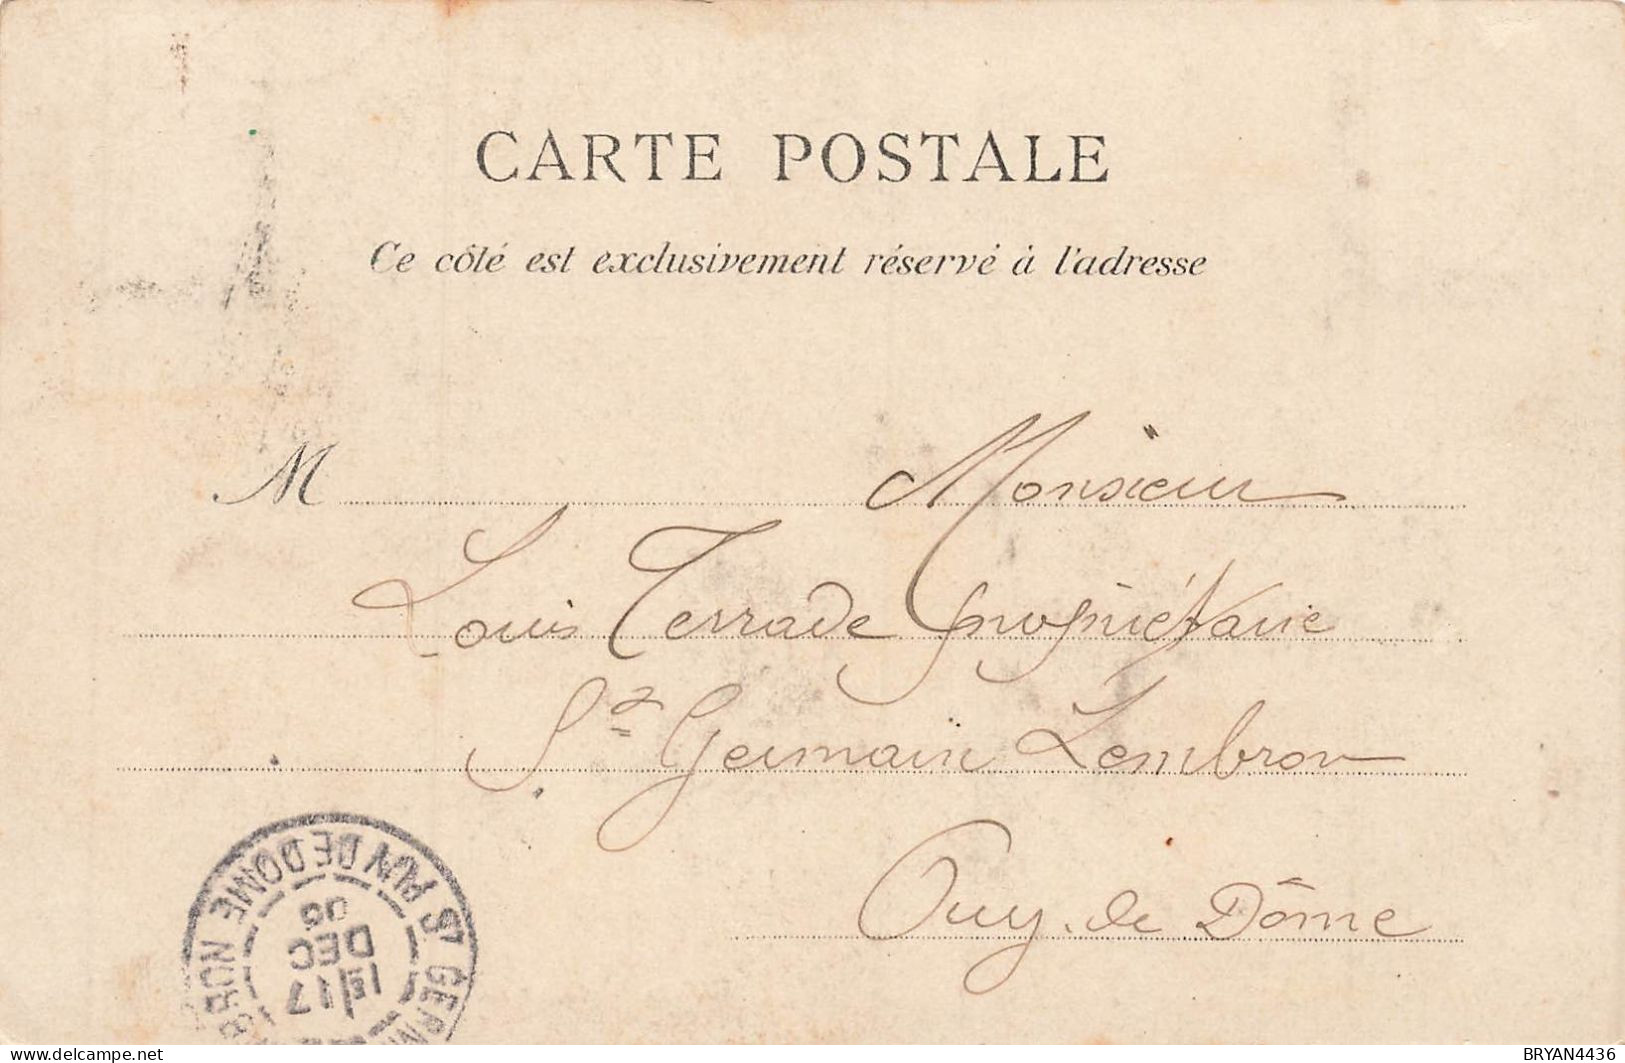 CARTE POSTALE
Ce côté est exclusivement réservé à l'adresse
M Monsieur
Louis Terrade propriétaire
St Germain Lembron
Puy de Dôme
ST GERM BRON PUY DE DOME
17
DEC
05
BRYAN4436
delcampe.net